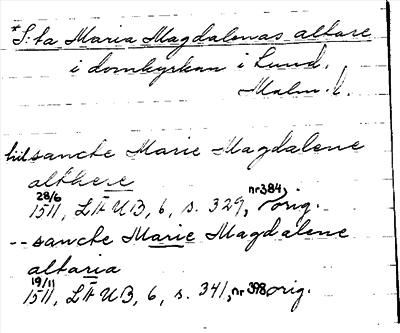 *S:ta Maria Magdalenas altare
i domkyrkan i Lund.
Malm. l.
till sancte Marie Magdalene
althere
28/6 1511, LÄUB, 6, s. 329, nr 384, orig.
-- sancte Marie Magdalene
altaria
19/11 1511, LÄUB, 6, s. 341, nr 398 orig.